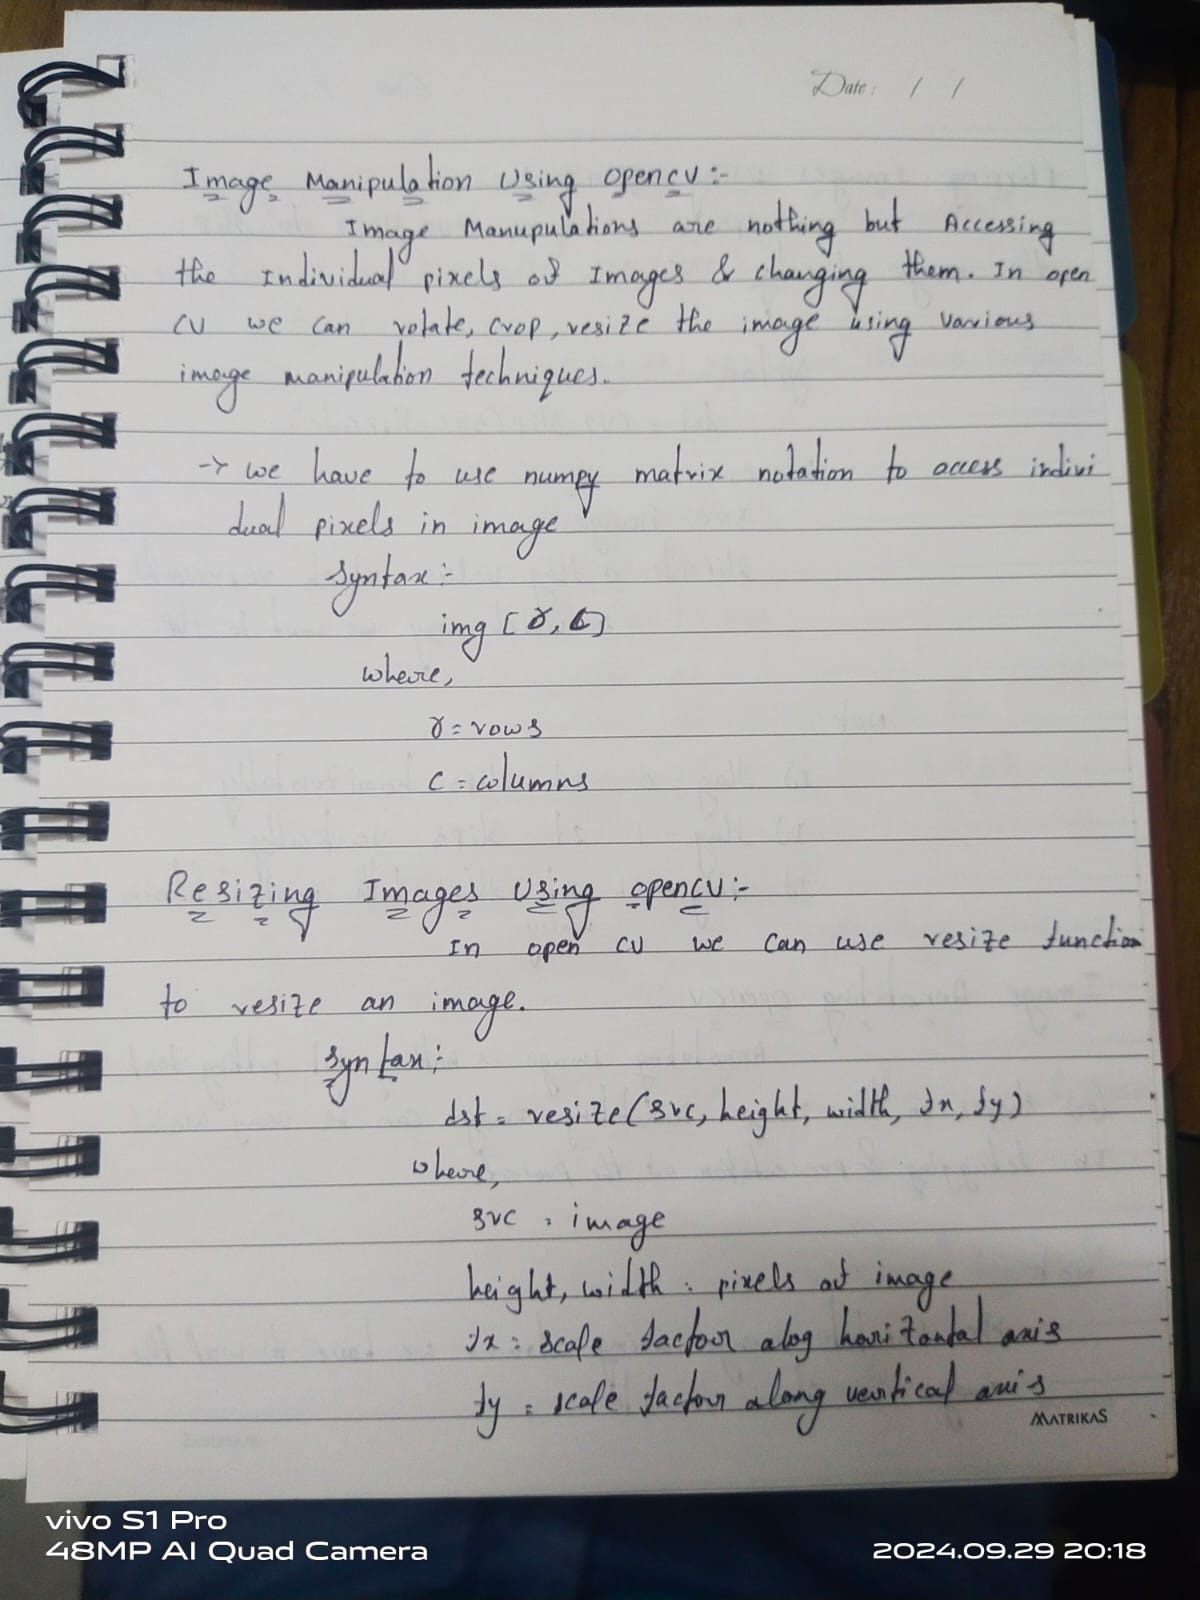 Date: / /
Image Manipulation Using opencv:-
Image Manupulations are nothing but Accessing
the Individual pixels of Images & changing them. In open
cv we can rotate, crop, resize the image using various
image manipulation techniques.
-> we have to use numpy matrix notation to access indivi
dual pixels in image
Syntax:-
img [r, c]
where,
r = rows
c = columns
Resizing Images Using opencv:-
In open cv we can use resize function
to resize an image.
Syntax:-
dst = resize(src, height, width, fx, fy)
where,
src = image
height, width = pixels of image
fx = scale factor alog horizontal axis
fy = scale factor along vertical axis
MATRIKAS
vivo S1 Pro
48MP AI Quad Camera
2024.09.29 20:18